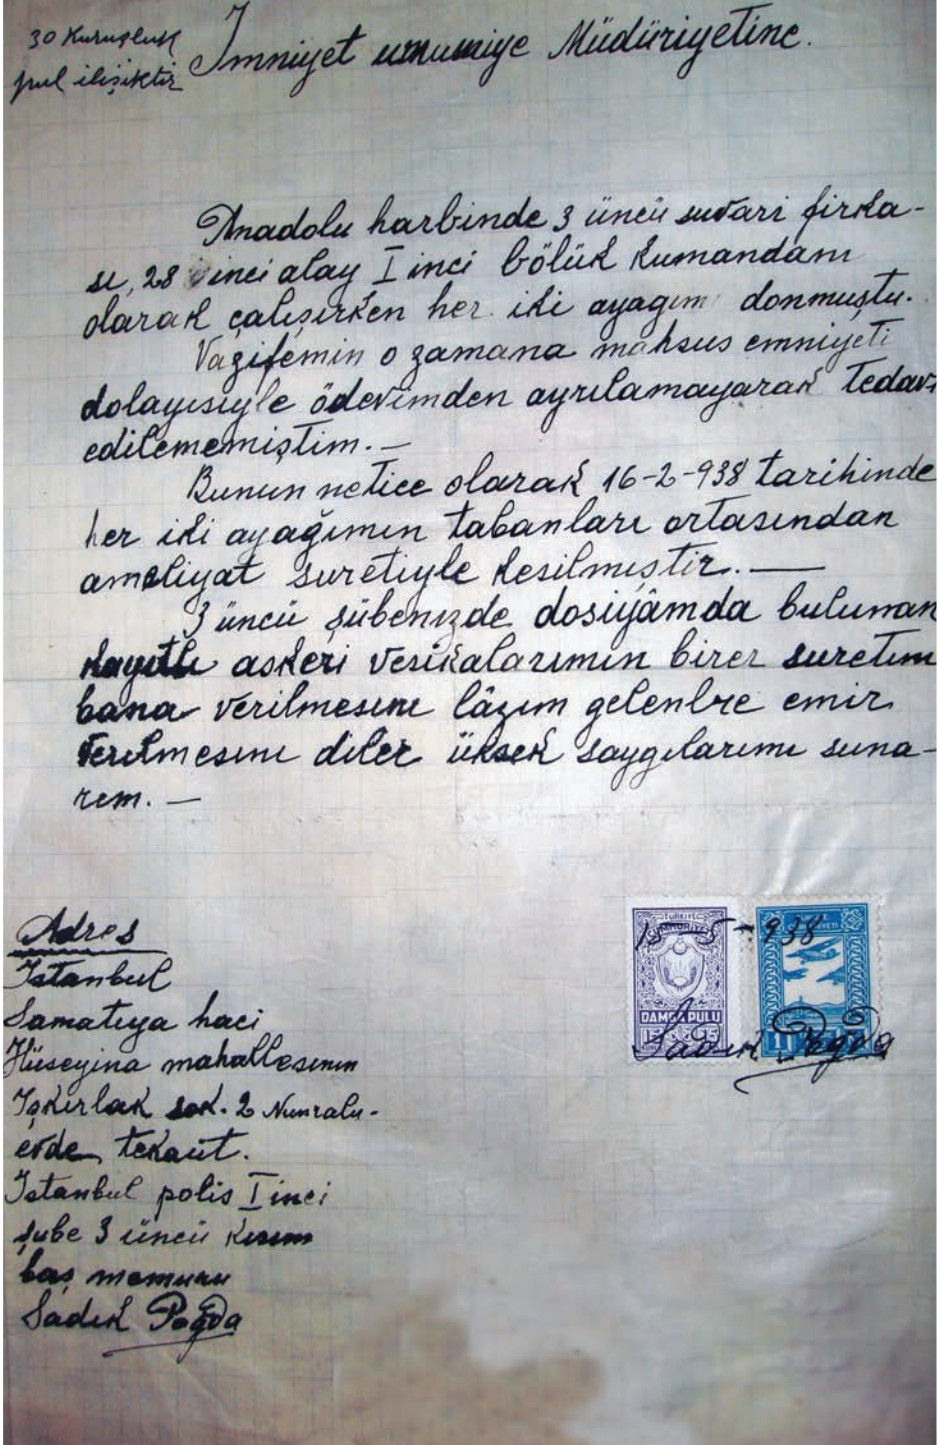 30 Kuruşluk
pul ilişiktir
Imniyet umumiye Müdüriyetine.
Anadolu harbinde 3 üncü suvari firka-
sı, 28 inci alay I inci bölük kumandanı
olarak çalışırken her iki ayagım donmuştu.
Vazifemin o zamana mahsus emniyeti
dolayısiyle ödevimden ayrılamayarak tedavi
edilememiştim. —
Bunun netice olarak 16-2-938 tarihinde
her iki ayağımın tabanları ortasından
ameliyat suretiyle kesilmıştir. —
3 üncü şübenizde dosiyâmda bulunan
kayıtlı askeri vesikalarımın birer suretını
bana verilmesını lâzım gelenlre emir
verilmesını diler üksek saygılarımı suna-
rım. —
Adres
Istanbul
Samatıya haci
Hüseyina mahallesının
sok. 2 Numralu-
evde tekaüt.
Istanbul polis I inci
şube 3 üncü kısım
baş memuru
Sadık Pağda
15-5-938
TÜRKİYE
DAMGA PULU
Sadık Pağda